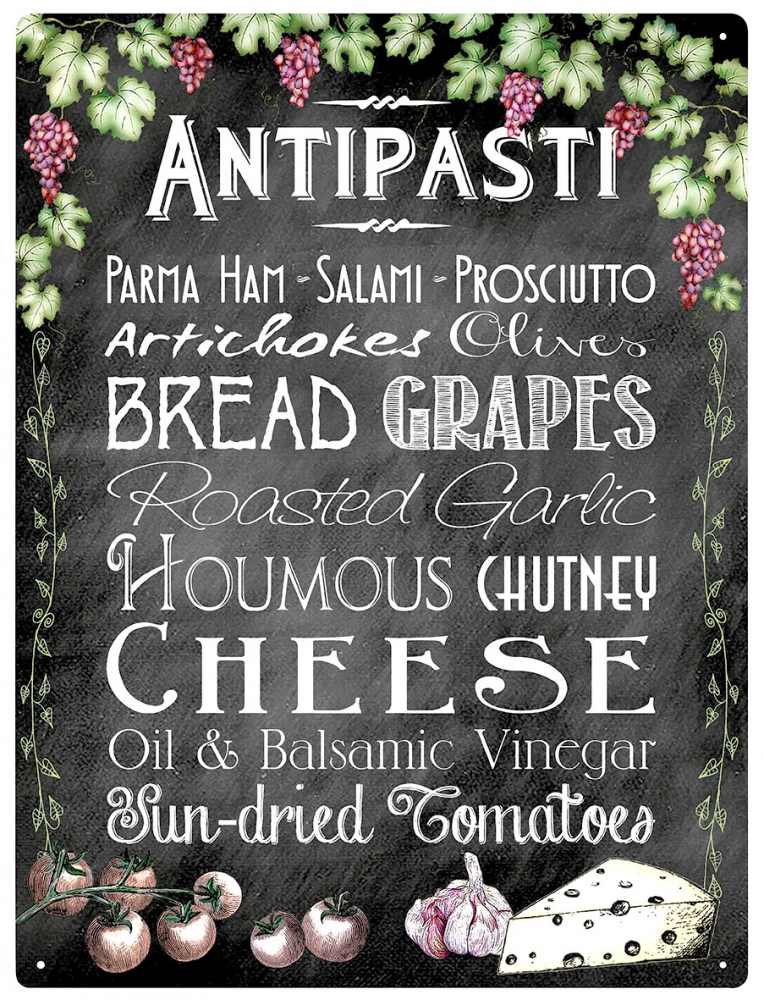 ANTIPASTI
PARMA HAM - SALAMI - PROSCIUTTO
Artichokes Olives
BREAD GRAPES
Roasted Garlic
HOUMOUS CHUTNEY
CHEESE
Oil & Balsamic Vinegar
Sun-dried Tomatoes